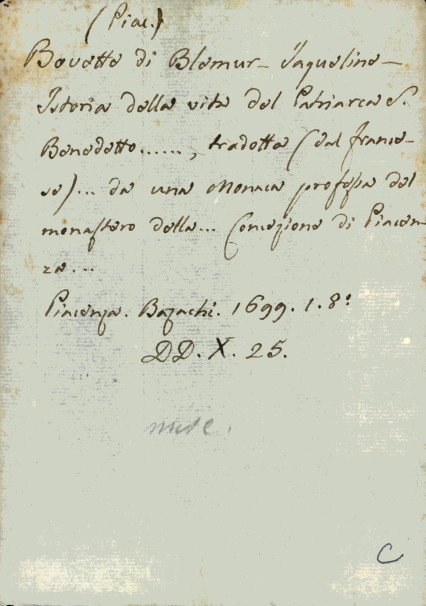 (Piac.)
Bovette di Blemur - Jaqueline -
Istoria della vita del Patriarca S.
Benedetto......, tradotta (dal france-
se)... da una Monaca professa del
monastero della... Concezione di Piacen-
za...
Piacenza. Bazachi. 1699. 1. 8º
DD. X. 25.
C